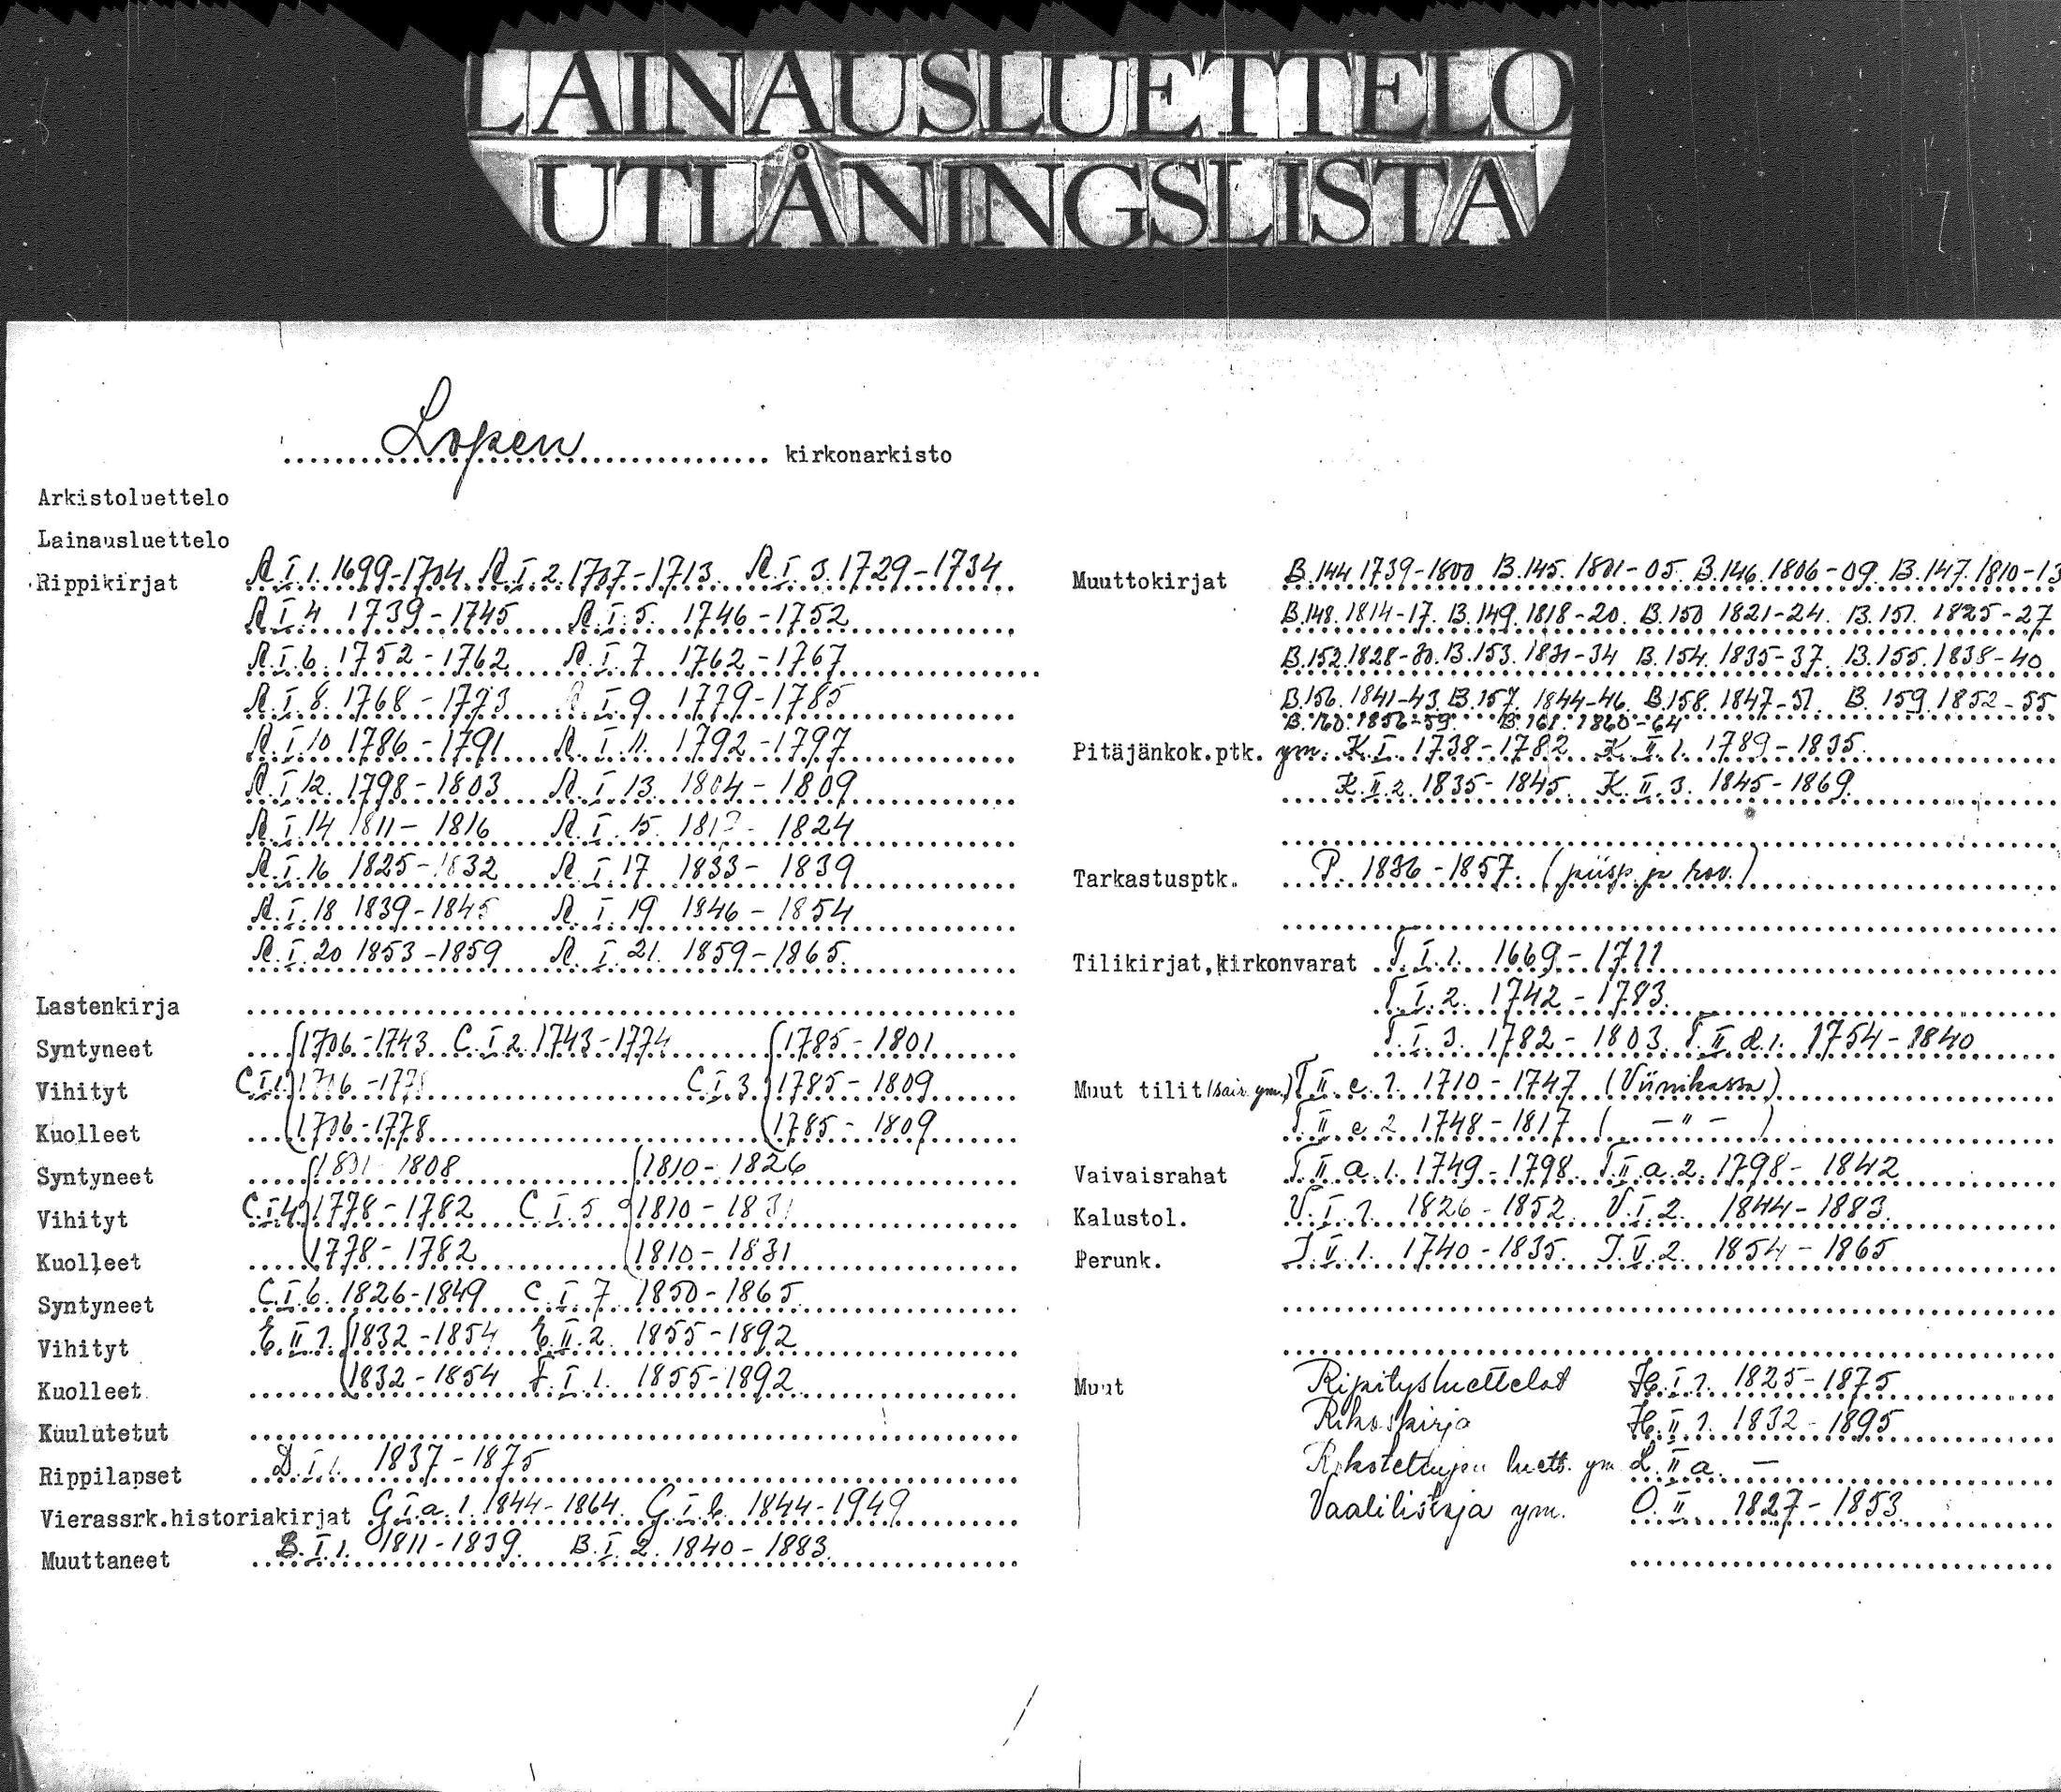 LAINAUSLUETTELO
UTLÅNINGSLISTA
Lopen kirkonarkisto
Arkistoluettelo
Lainausluettelo
Rippikirjat A.I.1. 1699-1704. A.I.2. 1707-1713. A.I.3. 1729-1734
A.I.4 1739-1745 A.I.5. 1746-1752
A.I.6. 1752-1762 A.I.7 1762-1767
A.I.8. 1768-1773 A.I.9 1779-1785
A.I.10 1786-1791 A.I.11. 1792-1797
A.I.12. 1798-1803 A.I.13. 1804-1809
A.I.14 1811-1816 A.I.15. 1824
A.I.16 1825-1832 A.I.17 1833-1839
A.I.18 1839-1845 A.I.19 1846-1854
A.I.20 1853-1859 A.I.21. 1859-1865.
Lastenkirja
Syntyneet 1706-1743 C.I.2. 1743-1774 1785-1801
Vihityt C.I.1. 1706- C.I.3 1785-1809
Kuolleet 1706-1778 1785-1809
Syntyneet 1801-1808 1810-1826
Vihityt C.I.4 1778-1782 C.I.5 1810-1831
Kuolleet 1778-1782 1810-1831
Syntyneet C.I.6. 1826-1849 C.I.7 1850-1865
Vihityt E.II.1. 1832-1854 E.II.2. 1855-1892
Kuolleet 1832-1854 F.I.1. 1855-1892
Kuulutetut
Rippilapset D.I.1. 1837-1875
Vierassrk.historiakirjat G.I.a.1. 1844-1864. G.I.b. 1844-1949
Muuttaneet B.I.1. 1811-1839. B.I.2. 1840-1883.
Muuttokirjat B.144 1739-1800 B.145. 1801-05. B.146. 1806-09. B.147. 1810-13
B.148. 1814-17. B.149. 1818-20. B.150 1821-24. B.151. 1825-27
B.152. 1828-30. B.153. 1831-34 B.154. 1835-37. B.155. 1838-40
B.156. 1841-43. B.157. 1844-46. B.158. 1847-51. B.159. 1852-55
B.160. 1856-59. B.161. 1860-64
Pitäjänkok.ptk. ym. K.I. 1738-1782 K.II.1. 1789-1835.
K.II.2. 1835-1845. K.II.3. 1845-1869.
Tarkastusptk. P. 1836-1857. (piisp. ja rov.)
Tilikirjat,kirkonvarat T.I.1. 1669-1711
T.I.2. 1742-1783.
T.I.3. 1782-1803. T.II.d.1. 1754-1840
Muut tilit (sair. ym.) T.II.e.1. 1710-1747 (Viinikassa)
T.II.e.2 1748-1817 ( -"- )
Vaivaisrahat T.II.a.1. 1749-1798. T.II.a.2. 1798-1842
Kalustol. V.I.1. 1826-1852. V.I.2. 1844-1883.
Perunk. J.V.1. 1740-1835. J.V.2. 1854-1865
Muut Ripitysluettelot H.I.1. 1825-1875
Rikoskirja H.II.1. 1832-1895
Rokotettujen luett. ym L.II.a. -
Vaalilistoja ym. O.II. 1827-1853.